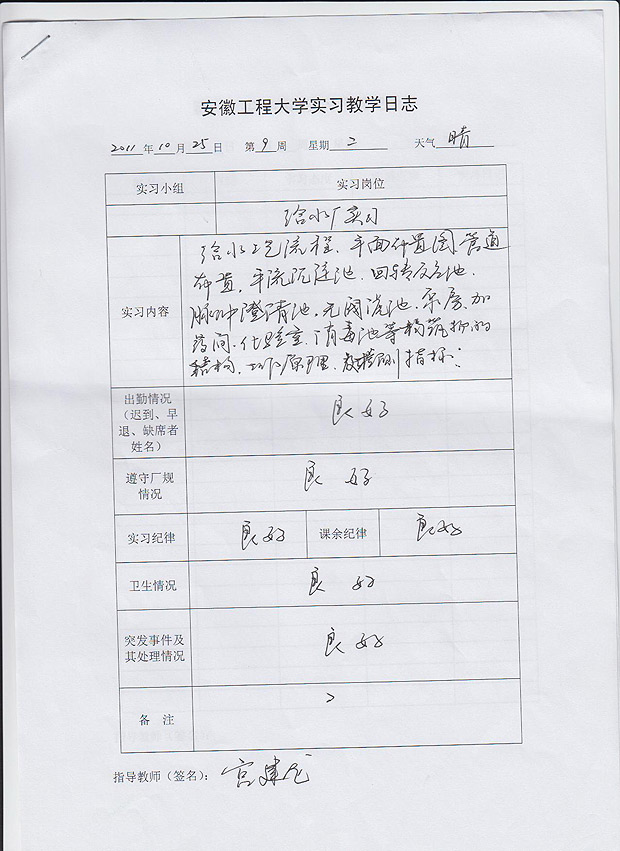 安徽工程大学实习教学日志
2011年10月25日 第9周 星期二 天气 晴
实习小组 实习岗位
给水厂实习
实习内容
给水工艺流程、平面布置图、管道
布置，平流沉淀池、回转反应池、
脉冲澄清池、无阀滤池、泵房、加
药间、化验室、消毒池等构筑物的
结构、工作原理、指标.
出勤情况
（迟到、早
退、缺席者
姓名）
良好
遵守厂规
情况
良好
实习纪律 良好 课余纪律 良好
卫生情况 良好
突发事件及
其处理情况
良好
备 注
指导教师（签名）：宫建龙